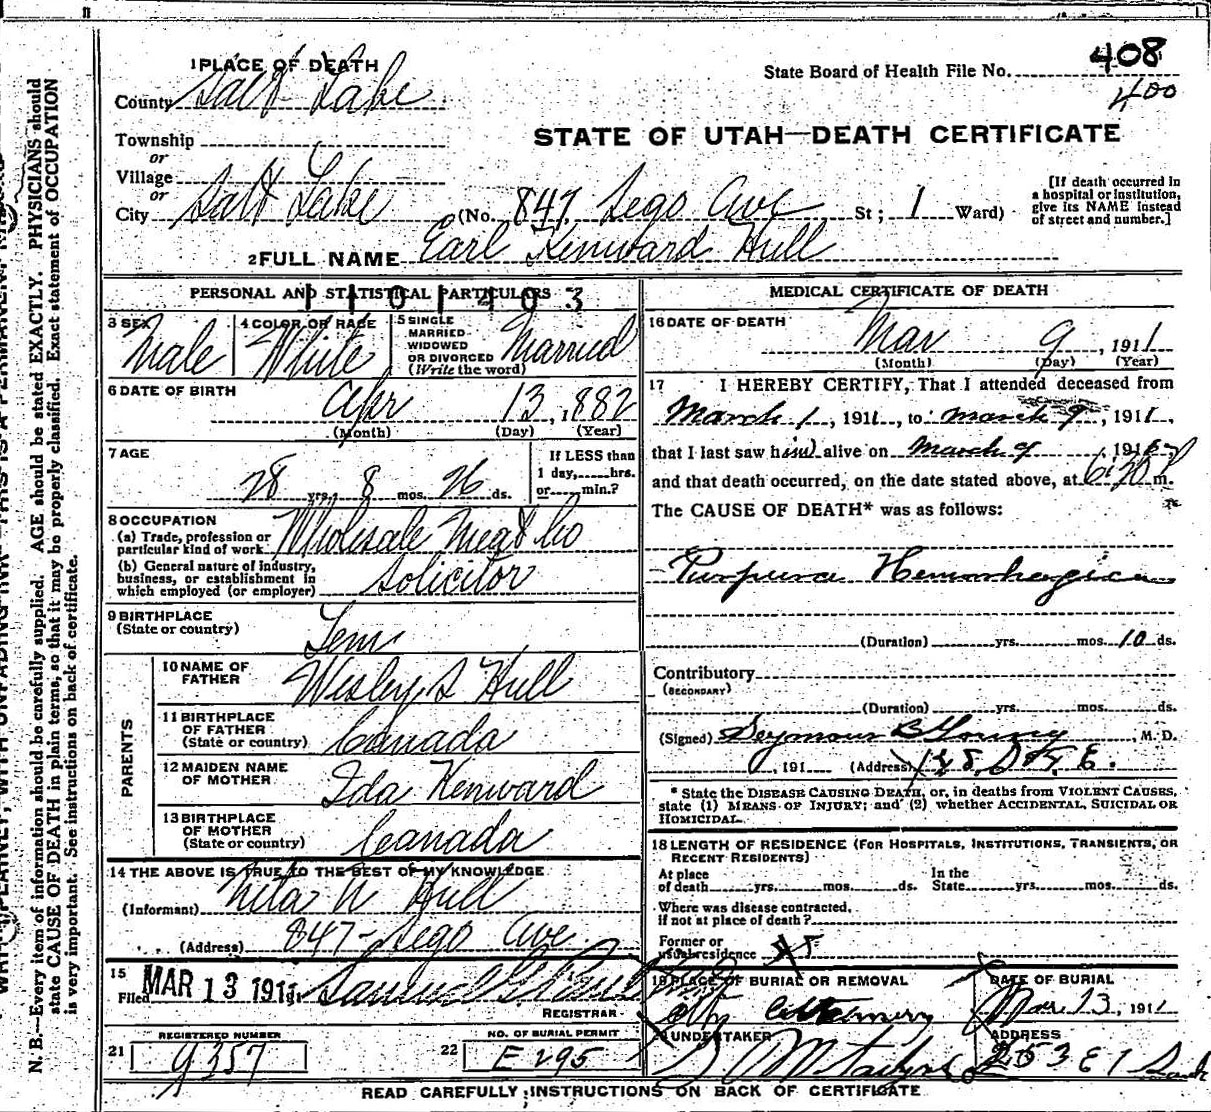 408
State Board of Health File No.
400
1 PLACE OF DEATH
County Salt Lake
STATE OF UTAH—DEATH CERTIFICATE
Township
or
Village
or
City Salt Lake (No. 847 Sego Ave St; 1 Ward)
[If death occurred in a hospital or institution, give its NAME instead of street and number.]
2 FULL NAME Earl Kenward Hull
PERSONAL AND STATISTICAL PARTICULARS
3 SEX Male
4 COLOR OR RACE White
5 SINGLE MARRIED WIDOWED OR DIVORCED (Write the word) Married
6 DATE OF BIRTH Apr 13, 1882
(Month) (Day) (Year)
7 AGE 28 yrs. 8 mos. 26 ds.
If LESS than 1 day,......hrs. or......min.?
8 OCCUPATION
(a) Trade, profession or particular kind of work Wholesale Meat Co
(b) General nature of industry, business, or establishment in which employed (or employer) Solicitor
9 BIRTHPLACE
(State or country)
10 NAME OF FATHER Wesley S Hull
PARENTS
11 BIRTHPLACE OF FATHER (State or country) Canada
12 MAIDEN NAME OF MOTHER Ida Kenward
13 BIRTHPLACE OF MOTHER (State or country) Canada
14 THE ABOVE IS TRUE TO THE BEST OF MY KNOWLEDGE
(Informant) Neta W Hull
(Address) 847 - Sego Ave
15 Filed MAR 13 1911 Samuel G
REGISTRAR
REGISTERED NUMBER
21 9357
NO. OF BURIAL PERMIT
22 E 295
MEDICAL CERTIFICATE OF DEATH
16 DATE OF DEATH Mar 9, 1911
(Month) (Day) (Year)
17 I HEREBY CERTIFY, That I attended deceased from
March 1, 1911, to March 9, 1911,
that I last saw him alive on March 9 191
and that death occurred, on the date stated above, at 6:20 P m.
The CAUSE OF DEATH* was as follows:
Purpura Hemorrhagica
(Duration) yrs. mos. 10 ds.
Contributory
(SECONDARY)
(Duration) yrs. mos. ds.
(Signed) Seymour B Young, M. D.
, 191 (Address)
* State the DISEASE CAUSING DEATH, or, in deaths from VIOLENT CAUSES, state (1) MEANS OF INJURY; and (2) whether ACCIDENTAL, SUICIDAL OR HOMICIDAL.
18 LENGTH OF RESIDENCE (FOR HOSPITALS, INSTITUTIONS, TRANSIENTS, OR RECENT RESIDENTS)
At place of death yrs. mos. ds. In the State yrs. mos. ds.
Where was disease contracted, if not at place of death?
Former or usual residence
19 PLACE OF BURIAL OR REMOVAL
City Cemetery
DATE OF BURIAL
Mar. 13, 1911
20 UNDERTAKER
ADDRESS
253 E 1 South
READ CAREFULLY INSTRUCTIONS ON BACK OF CERTIFICATE
N. B.—Every item of information should be carefully supplied. AGE should be stated EXACTLY. PHYSICIANS should
state CAUSE OF DEATH in plain terms, so that it may be properly classified. Exact statement of OCCUPATION
is very important. See instructions on back of certificate.